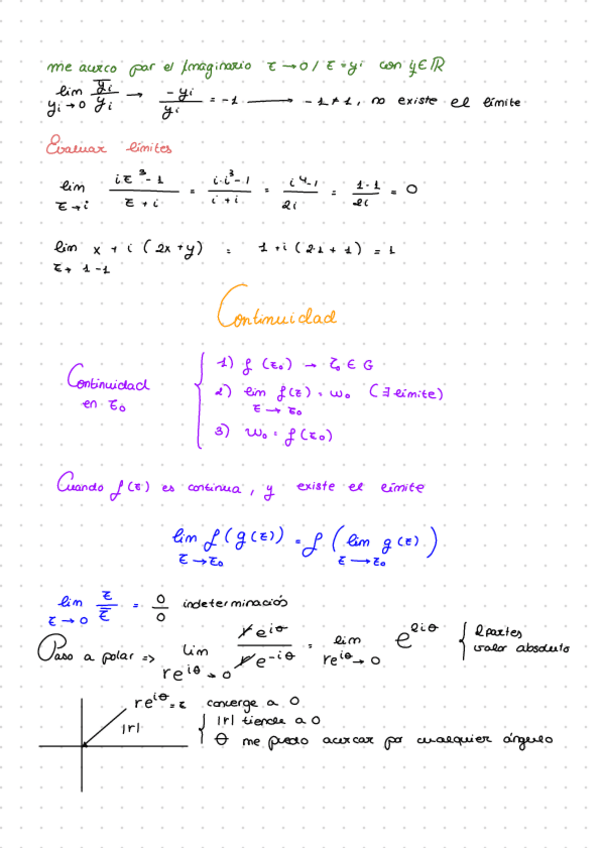 me acerco por el Imaginario z → 0 / z = yi con y ∈ ℝ
lim_{yi → 0} \overline{yi}/yi → -yi/yi = -1 ⟶ -1 ≠ 1, no existe el límite
Evaluar límites
lim_{z → i} (iz³-1)/(z+i) = (i·i³-1)/(i+i) = (i⁴-1)/2i = (1-1)/2i = 0
lim_{z → 1-1} x + i(2x+y) = 1+i(2·1+1) = 1
Continuidad
Continuidad en z₀
1) f(z₀) → z₀ ∈ G
2) lim_{z → z₀} f(z) = w₀ (∃ límite)
3) w₀ = f(z₀)
Cuando f(z) es continua, y existe el límite
lim_{z → z₀} f(g(z)) = f( lim_{z → z₀} g(z) )
lim_{z → 0} z/z̄ = 0/0 indeterminación
Paso a polar => lim_{re^{iθ} → 0} re^{iθ}/re^{-iθ} = lim_{re^{iθ} → 0} e^{2iθ} { 2 partes
valor absoluto
re^{iθ} = z converge a 0
|r| { |r| tiende a 0
θ me puedo acercar por cualquier ángulo